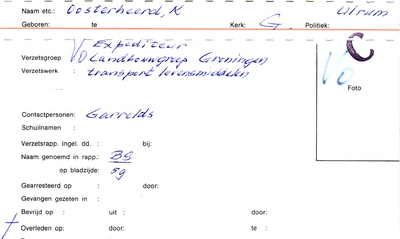 Naam etc.: Oosterheerd, K Ulrum
Geboren: te Kerk: G. Politiek:
Expediteur
Verzetsgroep VO Landbouwgroep Groningen
Verzetswerk : transport levensmiddelen
C
Vo
Foto
Contactpersonen: Garrelds
Schuilnamen :
Verzetsrapp. ingel. dd. : bij:
Naam genoemd in rapp.: BS
op bladzijde: 59
Gearresteerd op : door:
Gevangen gezeten in :
Bevrijd op : uit : door:
Overleden op: door: te :